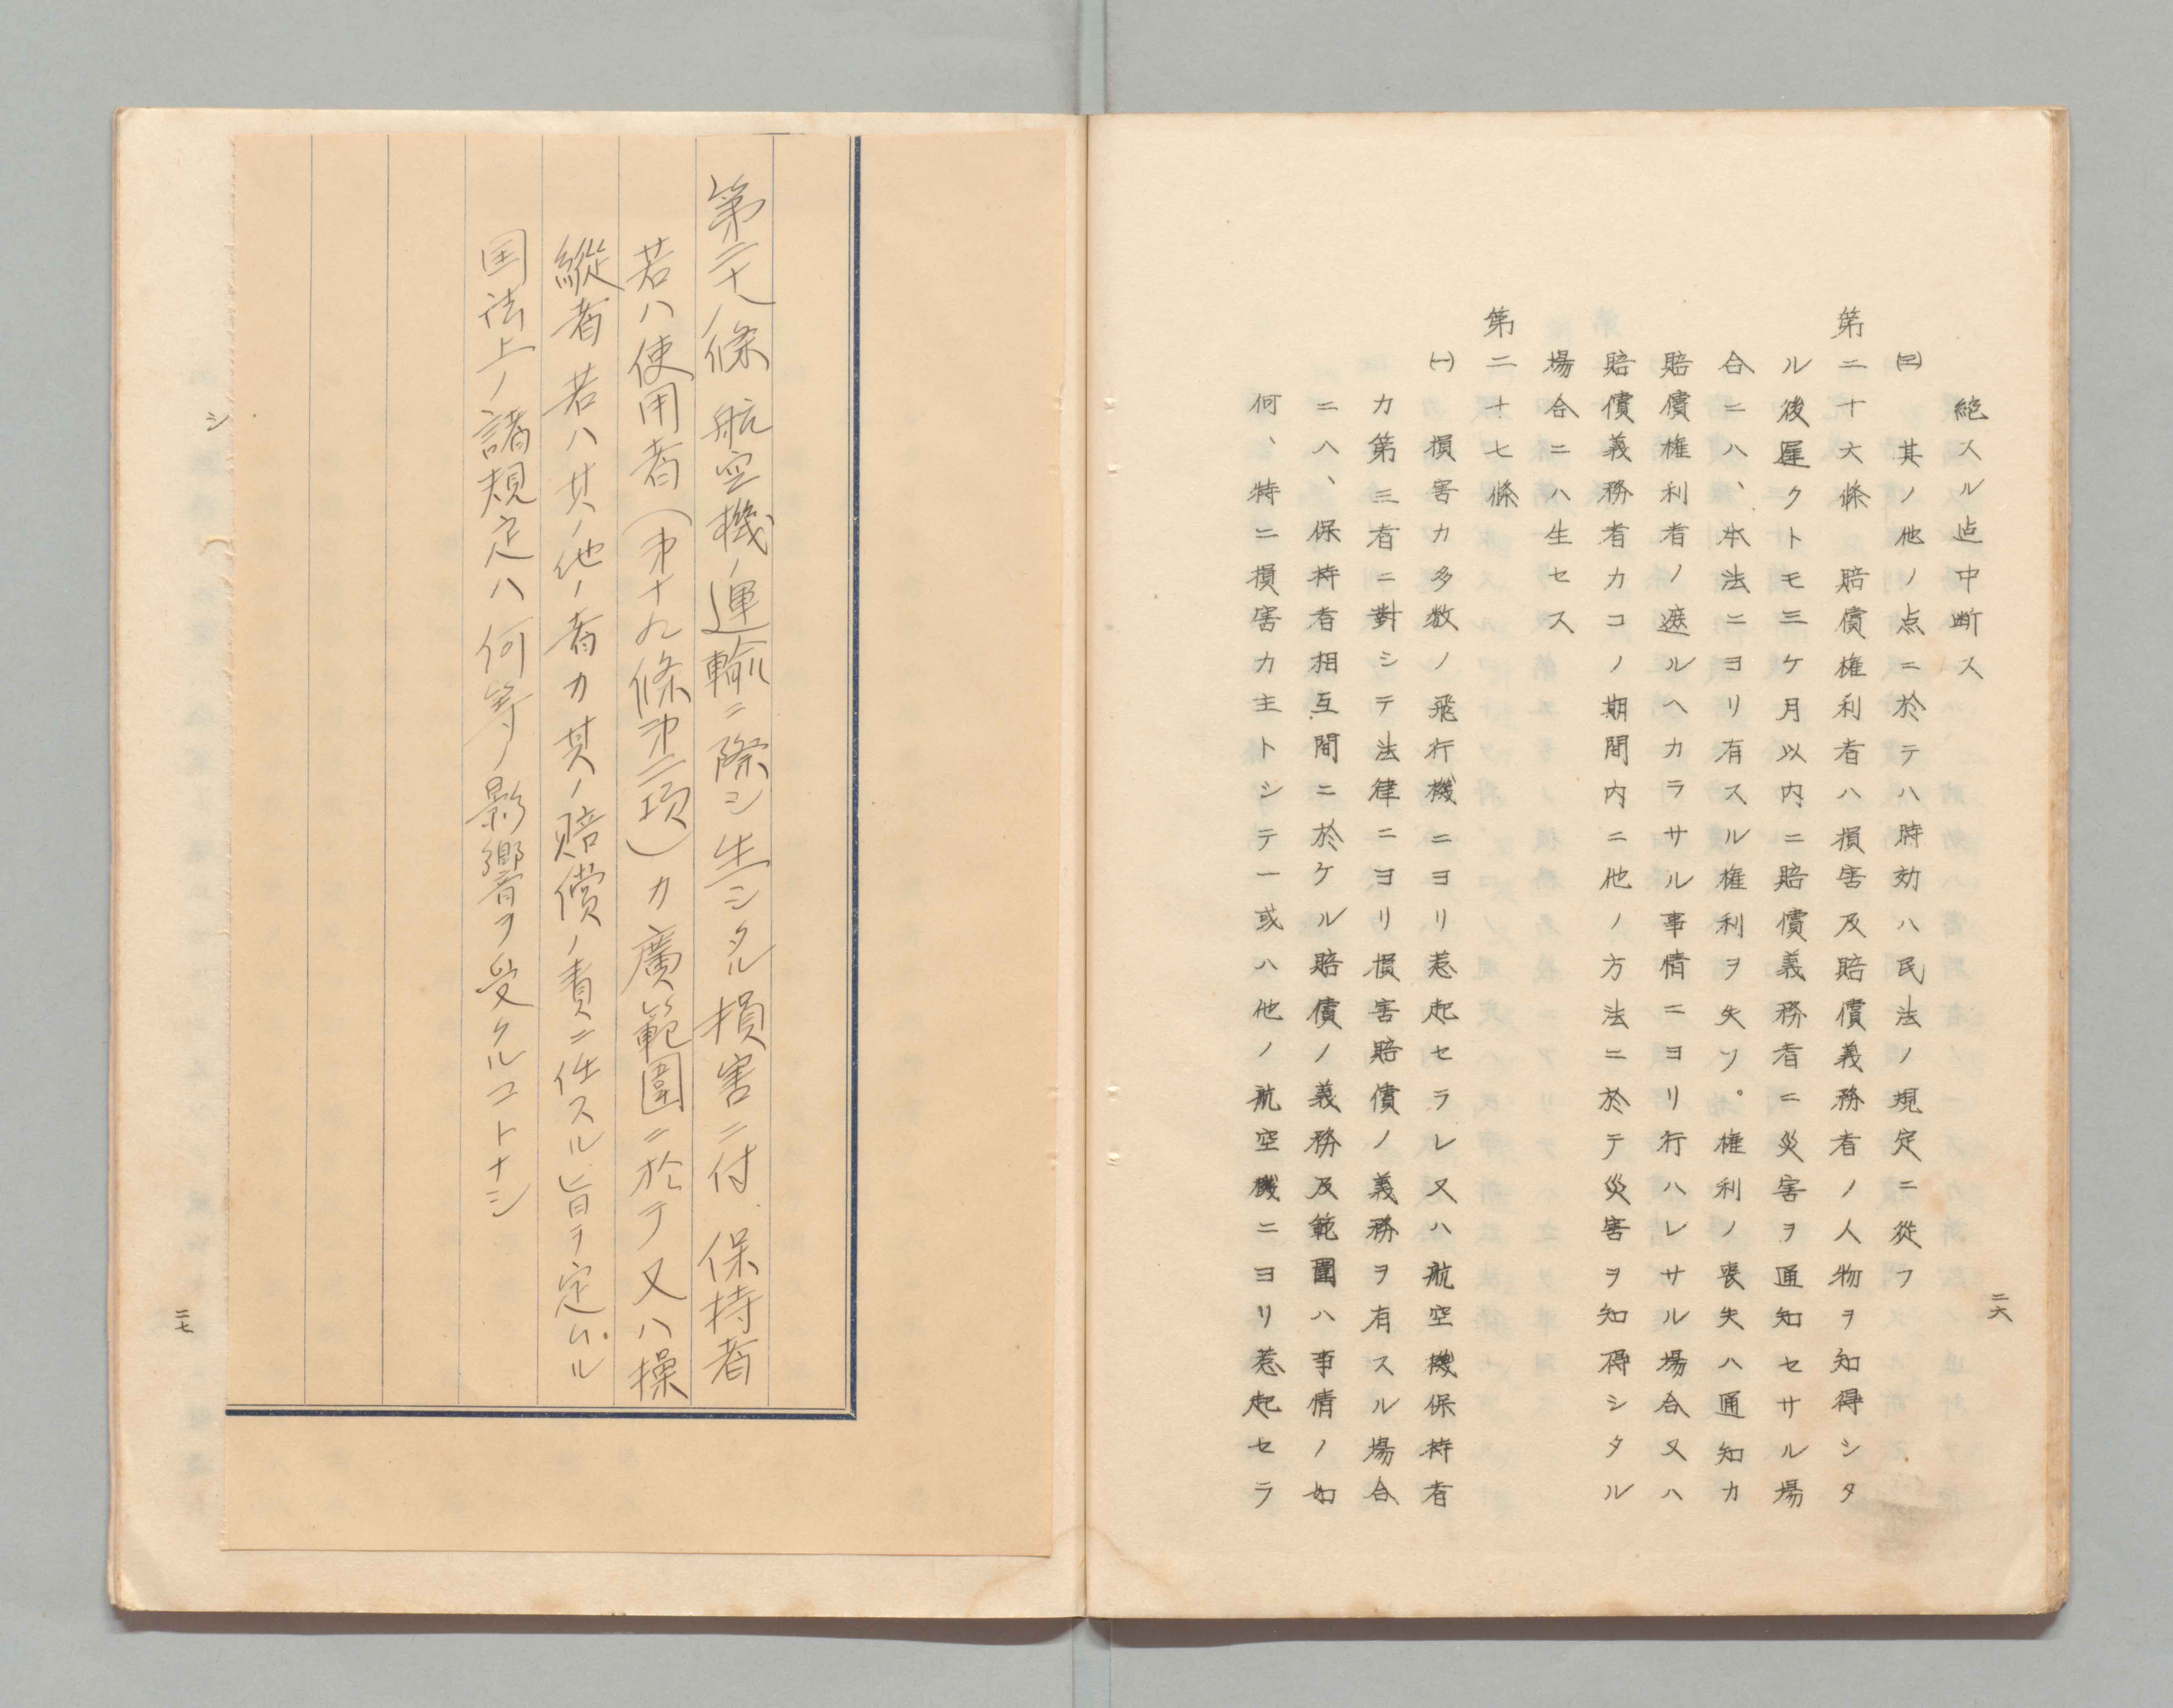 絶スル迄中断ス
㈢　其ノ他ノ点ニ於テハ時効ハ民法ノ規定ニ從フ
第二十六條　賠償権利者ハ損害及賠償義務者ノ人物ヲ知得シタ
ル後遅クトモ三ケ月以内ニ賠償義務者ニ災害ヲ通知セサル場
合ニハ、本法ニヨリ有スル権利ヲ失フ。権利ノ喪失ハ通知カ
賠償権利者ノ遮ルヘカラサル事情ニヨリ行ハレサル場合又ハ
賠償義務者カコノ期間内ニ他ノ方法ニ於テ災害ヲ知得シタル
場合ニハ生セス
第二十七條
㈠　損害カ多数ノ飛行機ニヨリ惹起セラレ又ハ航空機保持者
カ第三者ニ對シテ法律ニヨリ損害賠償ノ義務ヲ有スル場合
ニハ、保持者相互間ニ於ケル賠償ノ義務及範圍ハ事情ノ如
何、特ニ損害カ主トシテ一或ハ他ノ航空機ニヨリ惹起セラ
二六
第二十八條　航空機ノ運輸ニ際シ生シタル損害ニ付　保持者
若ハ使用者（第十九條第二項）カ廣範圍ニ於テ又ハ操
縦者若ハ其ノ他ノ者カ其ノ賠償ノ責ニ任スル旨ヲ定ムル
国法上ノ諸規定ハ何等ノ影響ヲ受クルコトナシ
シ
二七